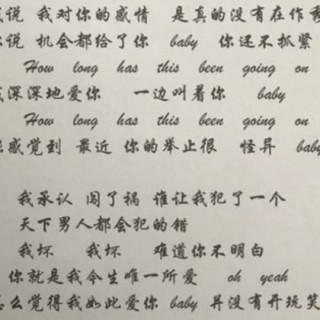 说 我对你的感情 是真的没有在作秀
说 机会都给了你 baby 你还不抓紧
How long has this been going on
深深地爱你 一边叫着你 baby
How long has this been going on
感觉到 最近 你的举止很 怪异 baby
我承认 闯了祸 谁让我犯了一个
天下男人都会犯的错
我坏 我坏 难道你不明白
你就是我今生唯一所爱 oh yeah
么觉得我如此爱你 baby 并没有开玩笑